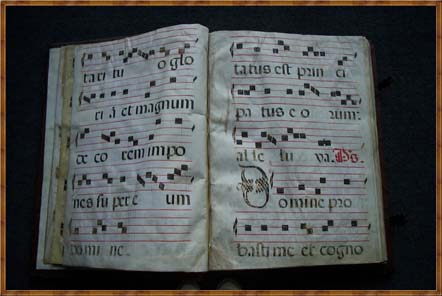 ta ri tu o glo
ri a et magnum
de co rem impo
nes su per e um
do mi ne
ta tus est prin ci
pa tus e o rum:
al le lu ya. Ps.
Domine pro
basti me et cogno